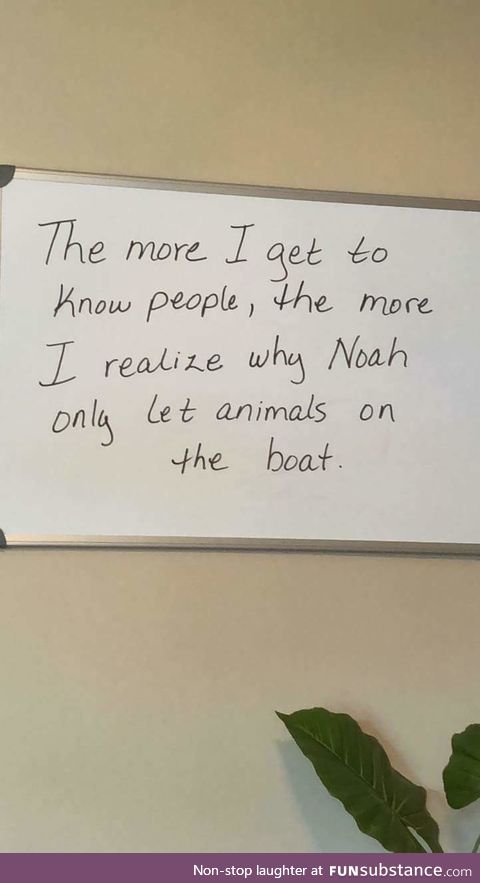 The more I get to
know people, the more
I realize why Noah
only let animals on
the boat.
Non-stop laughter at FUNsubstance.com